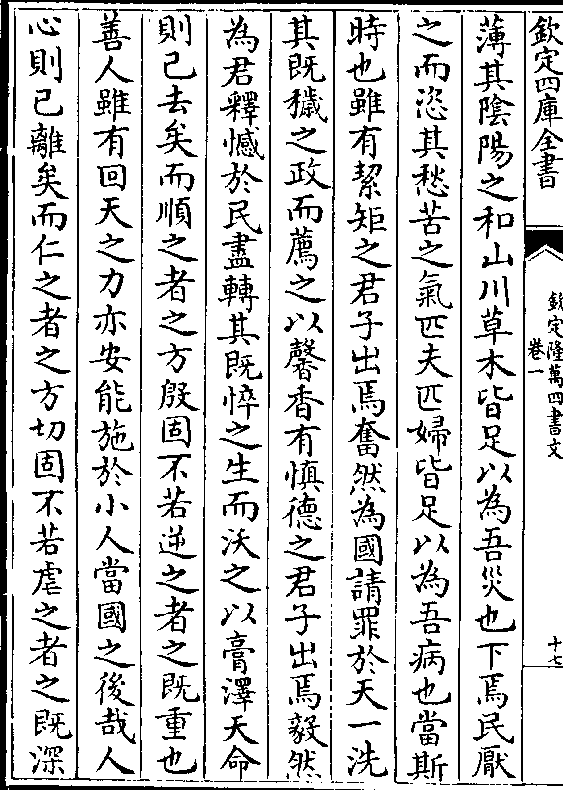 欽定四庫全書
欽定隆萬四書文
卷一
十七
薄其陰陽之和山川草木皆足以為吾災也下焉民厭
之而恣其愁苦之氣匹夫匹婦皆足以為吾病也當斯
時也雖有絜矩之君子出焉奮然為國請罪於天一洗
其既穢之政而薦之以馨香有慎德之君子出焉毅然
為君釋憾於民盡轉其既悴之生而沃之以膏澤天命
則已去矣而順之者之方殷固不若逆之者之既重也
善人雖有回天之力亦安能施於小人當國之後哉人
心則已離矣而仁之者之方切固不若虐之者之既深